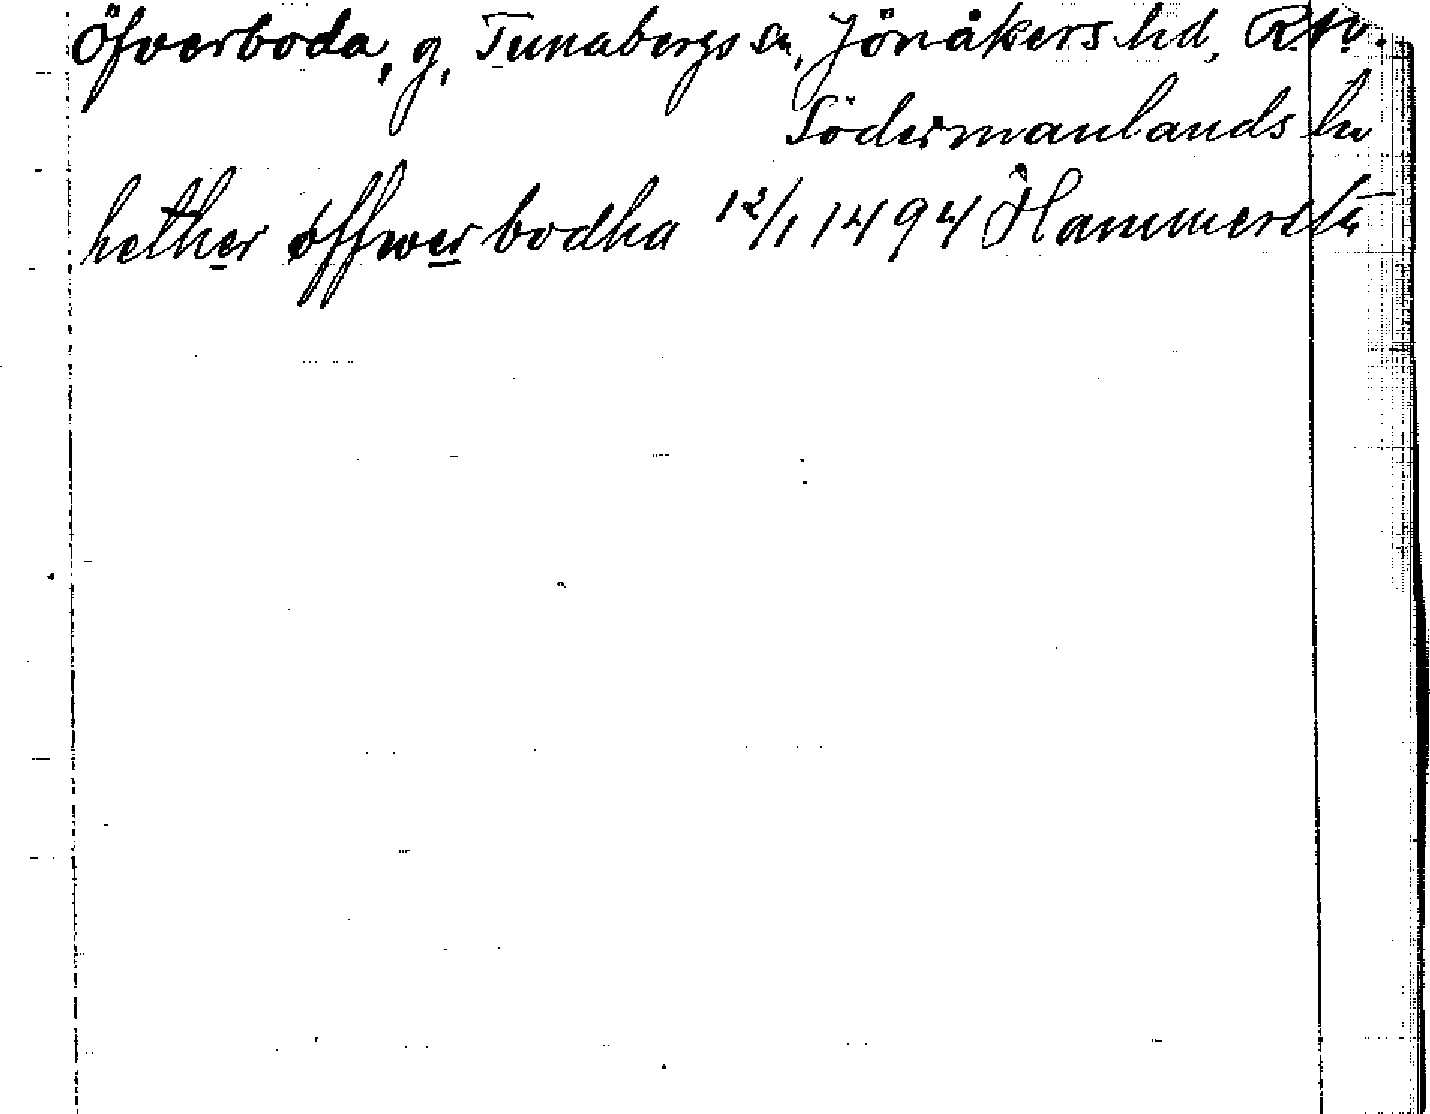 Öfverboda, g, Tunabergs sn, Jönåkers hd,
Södermanlands ln
hether øffwer bodha 12/1 1494 Hammersta